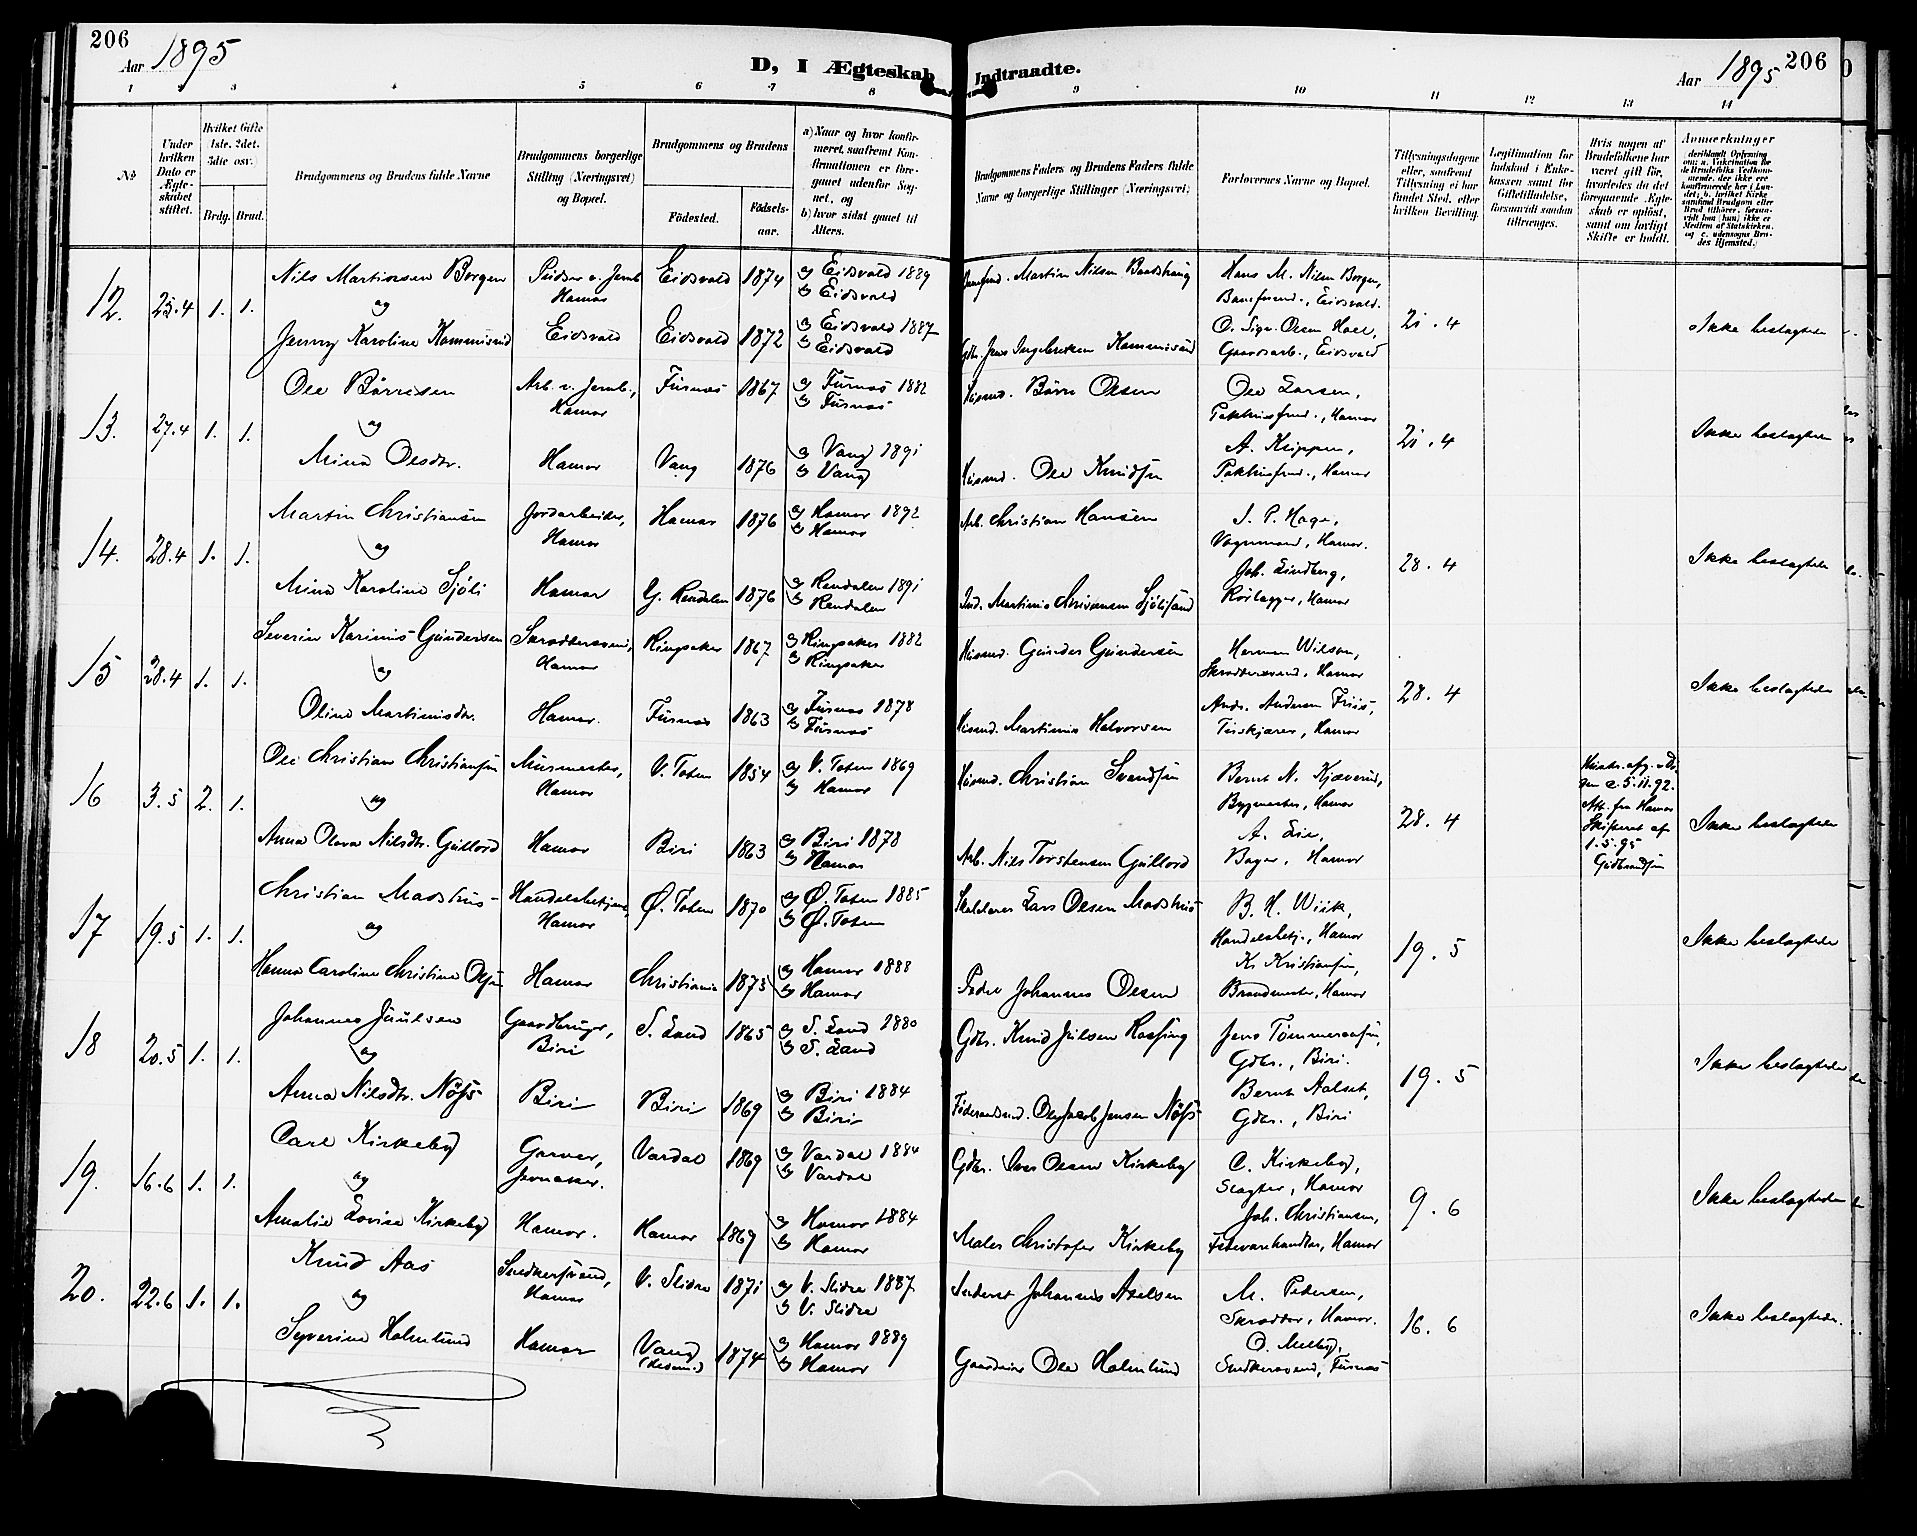 206
Aar 1895
D, I Ægteskab Indtraadte.
Aar 1895
206
1 2 3 4 5 6 7 8 9 10 11 12 13 14
No
Under hvilken Dato er Ægteskabet stiftet.
Hvilket Gifte 1ste, 2det, 3die osv.)
Brdg. Brud.
Brudgommens og Brudens fulde Navne
Brudgommens borgerlige Stilling (Næringsvei) og Bopæl.
Brudgommens og Brudens
Fødested.
Fødselsaar.
a) Naar og hvor konfirmeret, saafremt Konfirmationen er foregaaet udenfor Sognet, og
b) hvor sidst gaaet til Alters.
Brudgommens Faders og Brudens Faders fulde Navne og borgerlige Stillinger (Næringsvei)
Forlovernes Navne og Bopæl.
Tillysningsdagene eller, saafremt Tillysning ei har fundet Sted, efter hvilken Bevilling.
Legitimation for Indskud i Enkekassen samt for Giftetilladelse, forsaavidt saadan tiltrænges.
Hvis nogen af Brudefolkene har været gift før, hvorledes da det foregaaende Ægteskab er opløst, samt om lovligt Skifte er holdt.
Anmærkninger
12. 25.4 1. 1.
Nils Martinsen Borgen
Hamar
Eidsvold 1874
a) Eidsvold 1889
b) Eidsvold
Martin Nilsen
Hans M. Nilsen Borgen,
Eidsvold.
og
Jenny Karoline Hammisund
Eidsvold Eidsvold 1872
a) Eidsvold 1887
b) Eidsvold
O. Sigv. Olsen Hoel,
Gaardarb., Eidsvold
21.4
Ikke beslægtede
13. 27.4 1. 1.
Ole Børresen
Arb. v. Jernb.,
Hamar
Furnæs 1867
a) Furnæs 1882
b) Furnæs
Husmd. Børre Olsen
Ole Larsen,
Pakhusfmd., Hamar
og
Mina Olsdtr.
Hamar Vang 1876
a) Vang 1891
b) Vang
Husmd. Ole Knudsen
Pakhusfmd., Hamar
21.4
Ikke beslægtede
14. 28.4 1. 1.
Martin Christiansen
Jordarbeider,
Hamar
Hamar 1876
a) Hamar 1892
b) Hamar
Arb. Christian Hansen
J. P. Hage,
Vognmand, Hamar.
og
Mina Karoline Sjøli
Hamar Y. Rendalen 1876
a) Rendalen 1891
b) Rendalen
Joh. Lindberg,
Rørlægger, Hamar
28.4
Ikke beslægtede
15 28.4 1. 1.
Severin Karinius Gundersen
Skræddersvend,
Hamar
Ringsaker 1867
a) Ringsaker 1882
b) Ringsaker
Husmd. Gunder Gundersen
Herman Wilson,
Skræddersvend, Hamar
og
Oline Martinusdtr.
Hamar. Furnæs 1863
a) Furnæs 1878
b) Furnæs
Husmd. Martinus Halvorsen
Andr. Andersen Friis,
Hamar
28.4
Ikke beslægtede
16 3.5 2. 1.
Ole Christian Christiansen
Murmester,
Hamar
V. Toten 1854
a) V. Toten 1869
b) Hamar
Husmd. Christian Svendsen
Bernt N. Kjæverud,
Bygmester, Hamar
og
Anna Olava Nilsdtr. Gullord
Hamar Biri 1863
a) Biri 1878
b) Hamar
Arb. Nils Torstensen Gullord
A. Lie,
Bager, Hamar
28.4
Att. fra Hamar
Skifteret af
1.5.95
Gudbrandsen
Ikke beslægtede
17 19.5 1. 1.
Christian Madshus
Handelsbetjent,
Hamar
Ø. Toten 1870
a) Ø. Toten 1885
b) Ø. Toten
Lars Olsen Madshus
B. H. Wiik,
Handelsbetj., Hamar
og
Hanna Caroline Christine Olsen
Hamar Christiania 1873
a) Hamar 1888
b) Hamar
Johannes Olsen
Kr. Kristiansen,
Brandmester, Hamar
19.5
Ikke beslægtede
18 20.5 1. 1.
Johannes Juulsen
Gaardbruger,
Biri
S. Land 1865
a) S. Land 1880
b) S. Land
Gdbr. Knud Julsen
Jens Tømmeraasen,
Gdbr., Biri.
og
Anna Nilsdtr. Nøss
Biri Biri 1869
a) Biri 1884
b) Biri
Jensen Nøss
Bernt Aalset,
Gdbr., Biri
19.5
Ikke beslægtede
19. 16.6 1. 1.
Carl Kirkeby
Garver,
Jevnaker.
Vardal 1869
a) Vardal 1884
b) Vardal
Gdbr. Iver Olsen Kirkeby
C. Kirkeby,
Slagter, Hamar
og
Amalie Lovise Kirkeby
Hamar. Hamar 1869
a) Hamar 1884
b) Hamar
Maler Christofer Kirkeby
Joh. Christiansen,
Fedevarehandler, Hamar
9.6
Ikke beslægtede
20. 22.6 1. 1.
Knud Aas
Snedkersvend,
Hamar
V. Slidre 1871
a) V. Slidre 1887
b) V. Slidre
Johannes Axelsen
M. Pedersen,
Skrædder, Hamar.
og
Syverine Holmlund
Hamar Vang 1874
a) Hamar 1889
b) Hamar
Ole Holmlund
O. Melby,
Snedkersvend, Furnæs
16.6
Ikke beslægtede.